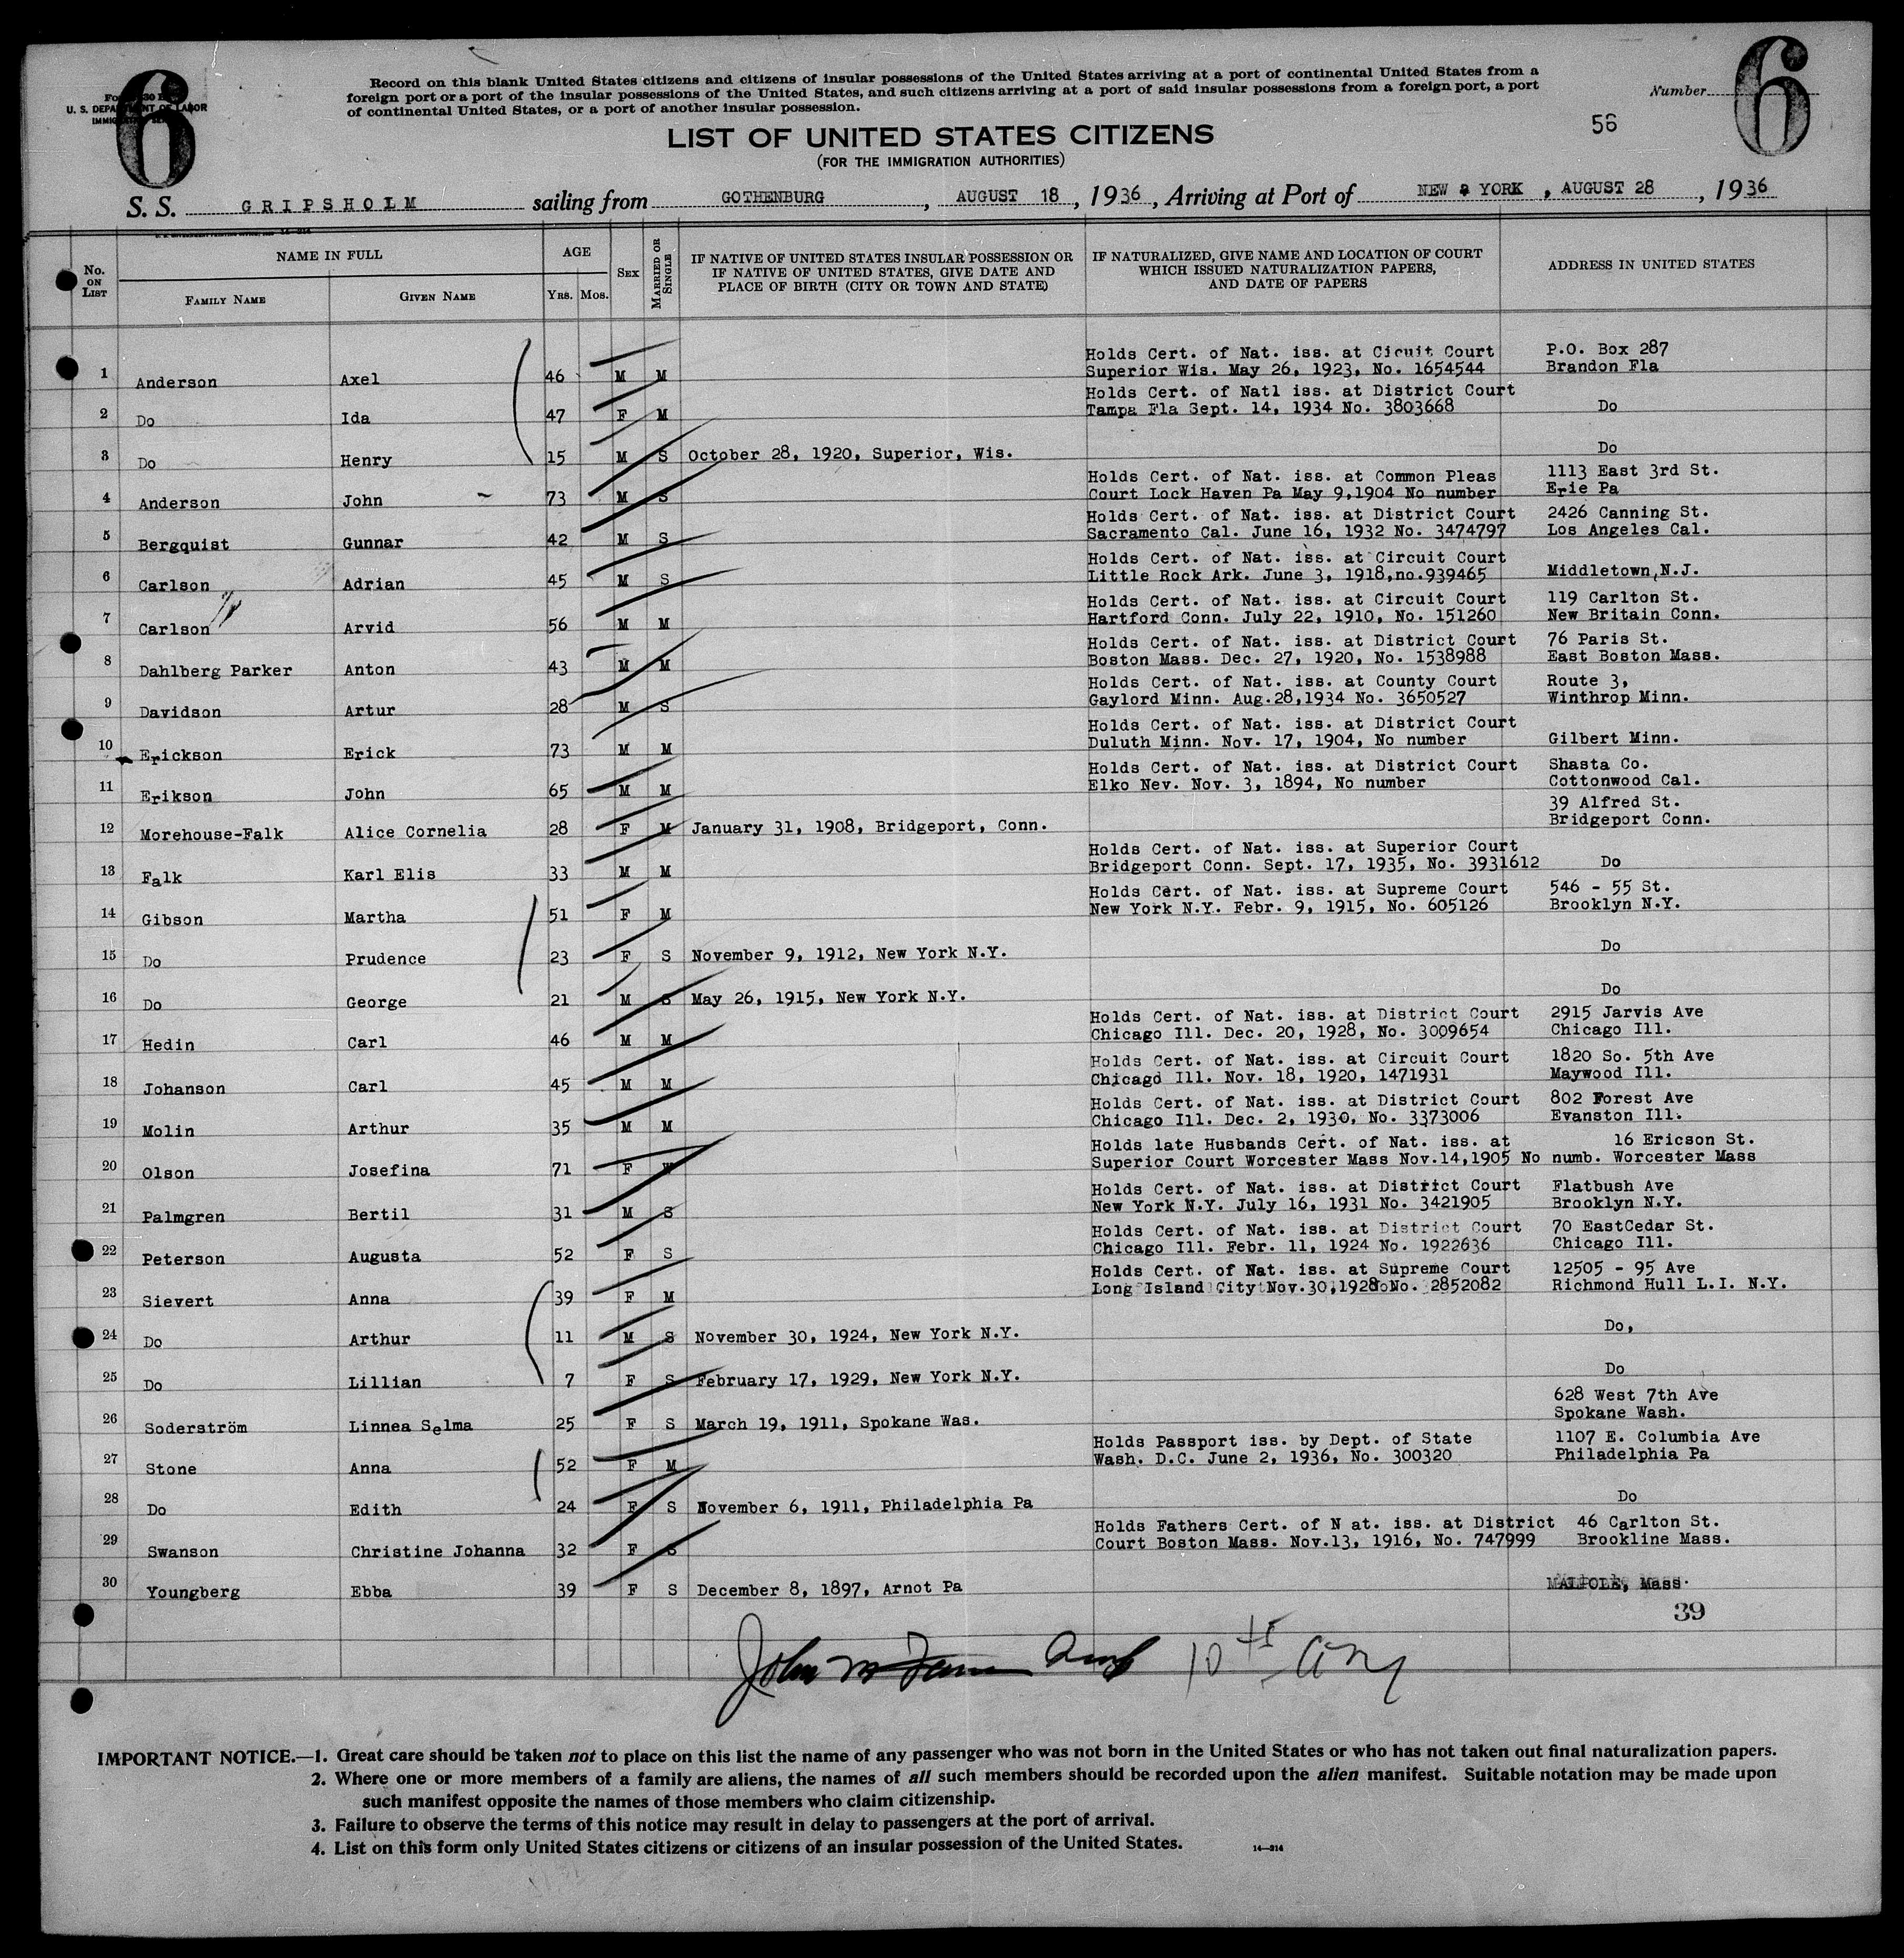 6
6
Record on this blank United States citizens and citizens of insular possessions of the United States arriving at a port of continental United States from a
foreign port or a port of the insular possessions of the United States, and such citizens arriving at a port of said insular possessions from a foreign port, a port
of continental United States, or a port of another insular possession.
U. S. DEPARTMENT OF LABOR
Number
56
LIST OF UNITED STATES CITIZENS
(FOR THE IMMIGRATION AUTHORITIES)
S. S. GRIPSHOLM sailing from GOTHENBURG, AUGUST 18, 1936, Arriving at Port of NEW YORK, AUGUST 28, 1936
No. ON LIST
NAME IN FULL
FAMILY NAME
GIVEN NAME
AGE
YRS. MOS.
SEX
MARRIED OR SINGLE
IF NATIVE OF UNITED STATES INSULAR POSSESSION OR
IF NATIVE OF UNITED STATES, GIVE DATE AND
PLACE OF BIRTH (CITY OR TOWN AND STATE)
IF NATURALIZED, GIVE NAME AND LOCATION OF COURT
WHICH ISSUED NATURALIZATION PAPERS,
AND DATE OF PAPERS
ADDRESS IN UNITED STATES
Holds Cert. of Nat. iss. at Cicuit Court P.O. Box 287
1 Anderson Axel 46 M M Superior Wis. May 26, 1923, No. 1654544 Brandon Fla
Holds Cert. of Natl iss. at District Court
2 Do Ida 47 F M Tampa Fla Sept. 14, 1934 No. 3803668 Do
3 Do Henry 15 M S October 28, 1920, Superior, Wis. Do
Holds Cert. of Nat. iss. at Common Pleas 1113 East 3rd St.
4 Anderson John 73 M S Court Lock Haven Pa May 9,1904 No number Erie Pa
Holds Cert. of Nat. iss. at District Court 2426 Canning St.
5 Bergquist Gunnar 42 M S Sacramento Cal. June 16, 1932 No. 3474797 Los Angeles Cal.
Holds Cert. of Nat. iss. at Circuit Court
6 Carlson Adrian 45 M S Little Rock Ark. June 3, 1918,no.939465 Middletown,N.J.
Holds Cert. of Nat. iss. at Circuit Court 119 Carlton St.
7 Carlson Arvid 56 M M Hartford Conn. July 22, 1910, No. 151260 New Britain Conn.
Holds Cert. of Nat. iss. at District Court 76 Paris St.
8 Dahlberg Parker Anton 43 M M Boston Mass. Dec. 27, 1920, No. 1538988 East Boston Mass.
Holds Cert. of Nat. iss. at County Court Route 3,
9 Davidson Artur 28 M S Gaylord Minn. Aug.28,1934 No. 3650527 Winthrop Minn.
Holds Cert. of Nat. iss. at District Court
10 Erickson Erick 73 M M Duluth Minn. Nov. 17, 1904, No number Gilbert Minn.
Holds Cert. of Nat. iss. at District Court Shasta Co.
11 Erikson John 65 M M Elko Nev. Nov. 3, 1894, No number Cottonwood Cal.
39 Alfred St.
12 Morehouse-Falk Alice Cornelia 28 F M January 31, 1908, Bridgeport, Conn. Bridgeport Conn.
Holds Cert. of Nat. iss. at Superior Court
13 Falk Karl Elis 33 M M Bridgeport Conn. Sept. 17, 1935, No. 3931612 Do
Holds Cert. of Nat. iss. at Supreme Court 546 - 55 St.
14 Gibson Martha 51 F M New York N.Y. Febr. 9, 1915, No. 605126 Brooklyn N.Y.
15 Do Prudence 23 F S November 9, 1912, New York N.Y. Do
16 Do George 21 M S May 26, 1915, New York N.Y. Do
Holds Cert. of Nat. iss. at District Court 2915 Jarvis Ave
17 Hedin Carl 46 M M Chicago Ill. Dec. 20, 1928, No. 3009654 Chicago Ill.
Holds Cert. of Nat. iss. at Circuit Court 1820 So. 5th Ave
18 Johanson Carl 45 M M Chicago Ill. Nov. 18, 1920, 1471931 Maywood Ill.
Holds Cert. of Nat. iss. at District Court 802 Forest Ave
19 Molin Arthur 35 M M Chicago Ill. Dec. 2, 1930, No. 3373006 Evanston Ill.
Holds late Husbands Cert. of Nat. iss. at 16 Ericson St.
20 Olson Josefina 71 F W Superior Court Worcester Mass Nov.14,1905 No numb. Worcester Mass
Holds Cert. of Nat. iss. at District Court Flatbush Ave
21 Palmgren Bertil 31 M S New York N.Y. July 16, 1931 No. 3421905 Brooklyn N.Y.
Holds Cert. of Nat. iss. at District Court 70 EastCedar St.
22 Peterson Augusta 52 F S Chicago Ill. Febr. 11, 1924 No. 1922636 Chicago Ill.
Holds Cert. of Nat. iss. at Supreme Court 12505 - 95 Ave
23 Sievert Anna 39 F M Long Island City Nov.30,1928 No. 2852082 Richmond Hull L.I. N.Y.
24 Do Arthur 11 M S November 30, 1924, New York N.Y. Do,
25 Do Lillian 7 F S February 17, 1929, New York N.Y. Do
628 West 7th Ave
26 Soderström Linnea Selma 25 F S March 19, 1911, Spokane Was. Spokane Wash.
Holds Passport iss. by Dept. of State 1107 E. Columbia Ave
27 Stone Anna 52 F M Wash. D.C. June 2, 1936, No. 300320 Philadelphia Pa
28 Do Edith 24 F S November 6, 1911, Philadelphia Pa Do
Holds Fathers Cert. of N at. iss. at District 46 Carlton St.
29 Swanson Christine Johanna 32 F S Court Boston Mass. Nov.13, 1916, No. 747999 Brookline Mass.
30 Youngberg Ebba 39 F S December 8, 1897, Arnot Pa Mass.
39
John 10th
IMPORTANT NOTICE.—1. Great care should be taken not to place on this list the name of any passenger who was not born in the United States or who has not taken out final naturalization papers.
2. Where one or more members of a family are aliens, the names of all such members should be recorded upon the alien manifest. Suitable notation may be made upon
such manifest opposite the names of those members who claim citizenship.
3. Failure to observe the terms of this notice may result in delay to passengers at the port of arrival.
4. List on this form only United States citizens or citizens of an insular possession of the United States.
14—214